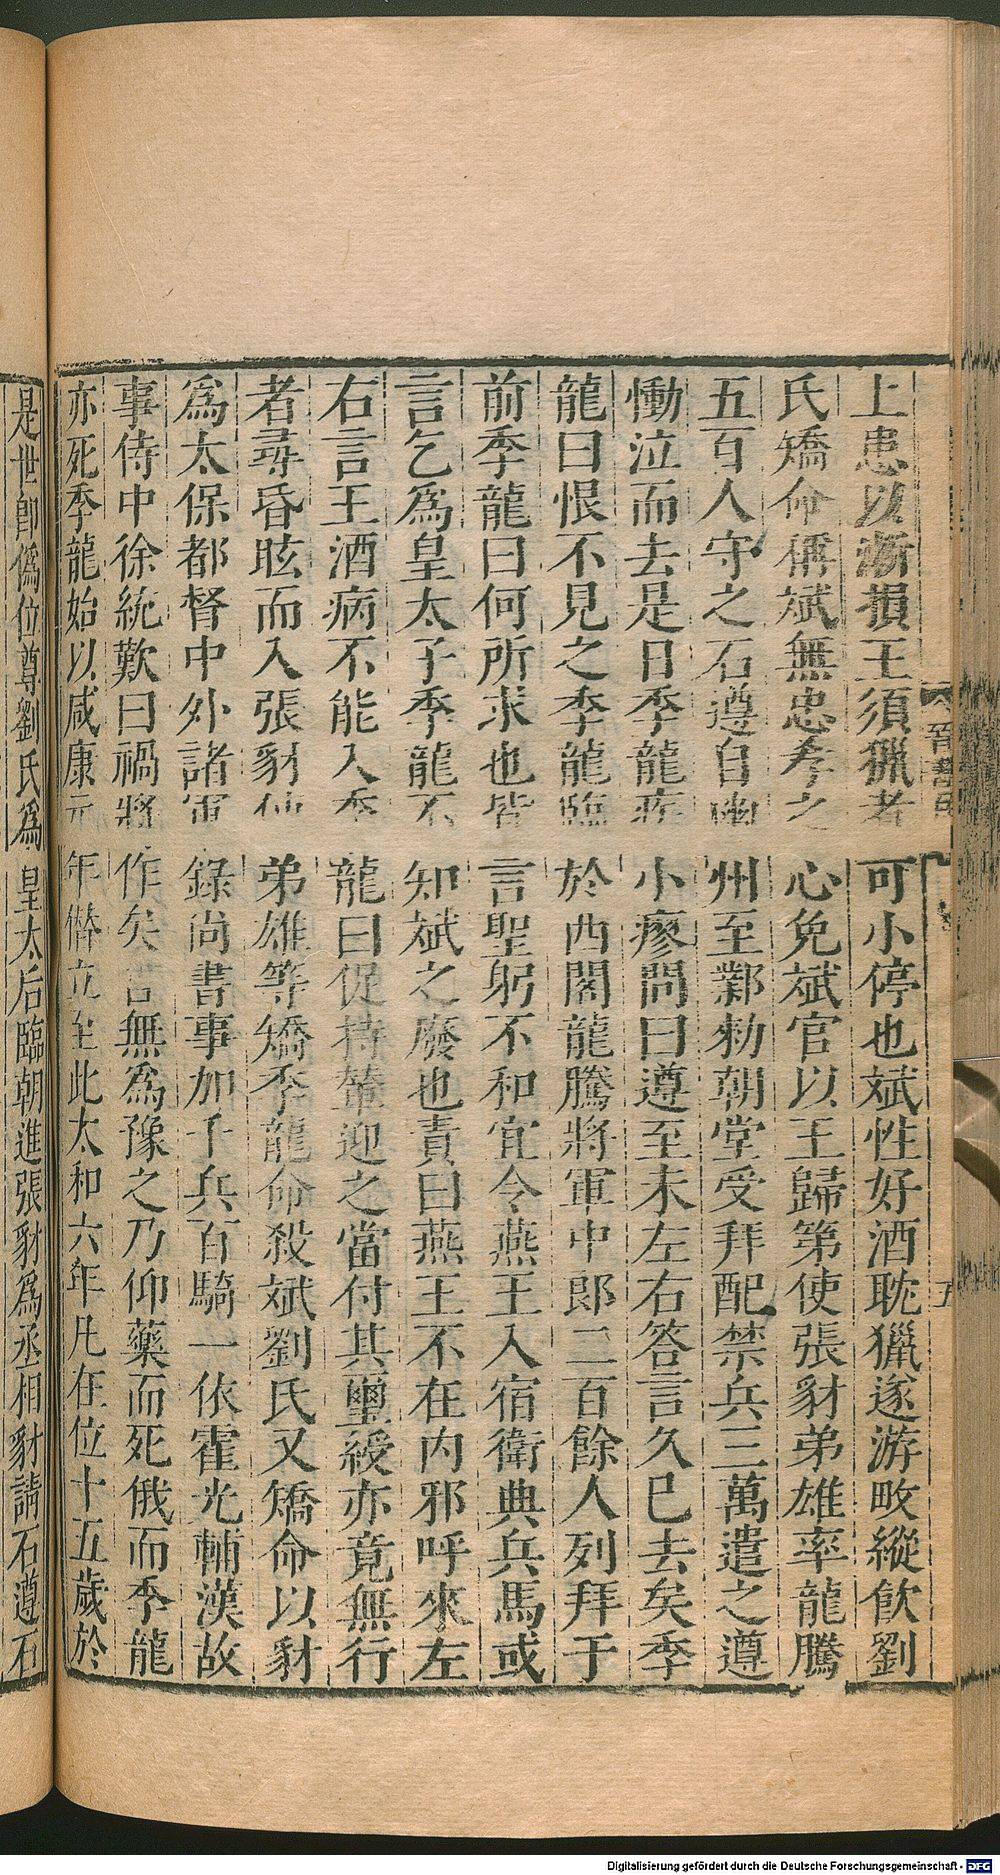 上患以漸損王須獵者可小停也斌性好酒耽獵遂游畋縱飲劉
氏矯命稱斌無忠孝之心免斌官以王歸第使張豺弟雄率龍騰
五百人守之石遵自幽州至鄴勑朝堂受拜配禁兵三萬遣之遵
慟泣而去是日季龍疾小瘳問曰遵至未左右答言久已去矣季
龍曰恨不見之季龍臨於西閣龍騰將軍中郎二百餘人列拜于
前季龍曰何所求也皆言聖躬不和宜令燕王入宿衛典兵馬或
言乞為皇太子季龍不知斌之廢也責曰燕王不在內邪呼來左
右言王酒病不能入季龍曰促持輦迎之當付其璽綬亦竟無行
者尋昏眩而入張豺使弟雄等矯季龍命殺斌劉氏又矯命以豺
為太保都督中外諸軍錄尚書事加千兵百騎一依霍光輔漢故
事侍中徐統歎曰禍將作矣吾無為豫之乃仰藥而死俄而季龍
亦死季龍始以咸康元年僭立至此太和六年凡在位十五歲於
是世即偽位尊劉氏為皇太后臨朝進張豺為丞相豺請石遵石
晉書
五
Digitalisierung gefördert durch die Deutsche Forschungsgemeinschaft - DFG